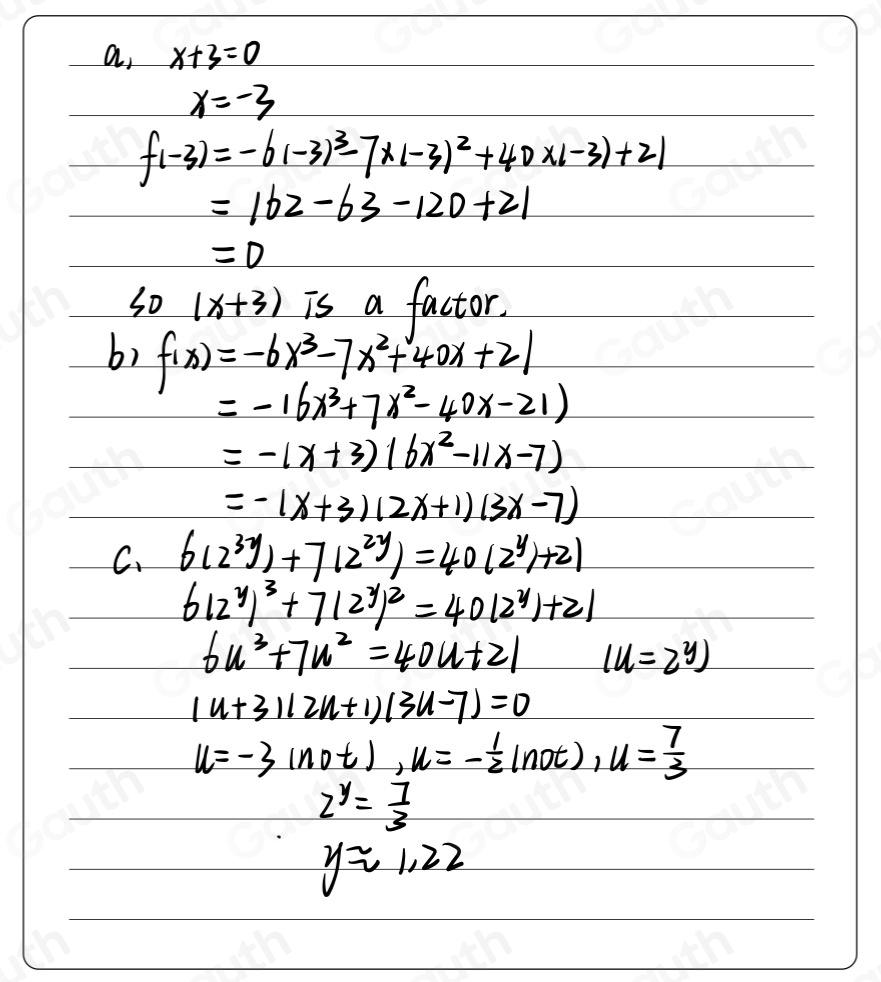 a, x+3=0
x=-3
f(-3)=-6(-3)³-7×(-3)²+40×(-3)+21
=162-63-120+21
=0
so (x+3) is a factor.
b) f(x)=-6x³-7x²+40x+21
=-(6x³+7x²-40x-21)
=-(x+3)(6x²-11x-7)
=-(x+3)(2x+1)(3x-7)
c、 6(2^{3y})+7(2^{2y})=40(2^y)+21
6(2^y)³+7(2^y)²=40(2^y)+21
6u³+7u²=40u+21 (u=2^y)
(u+3)(2u+1)(3u-7)=0
u=-3 (not), u=-1/2 (not), u=7/3
2^y=7/3
y≈1,22